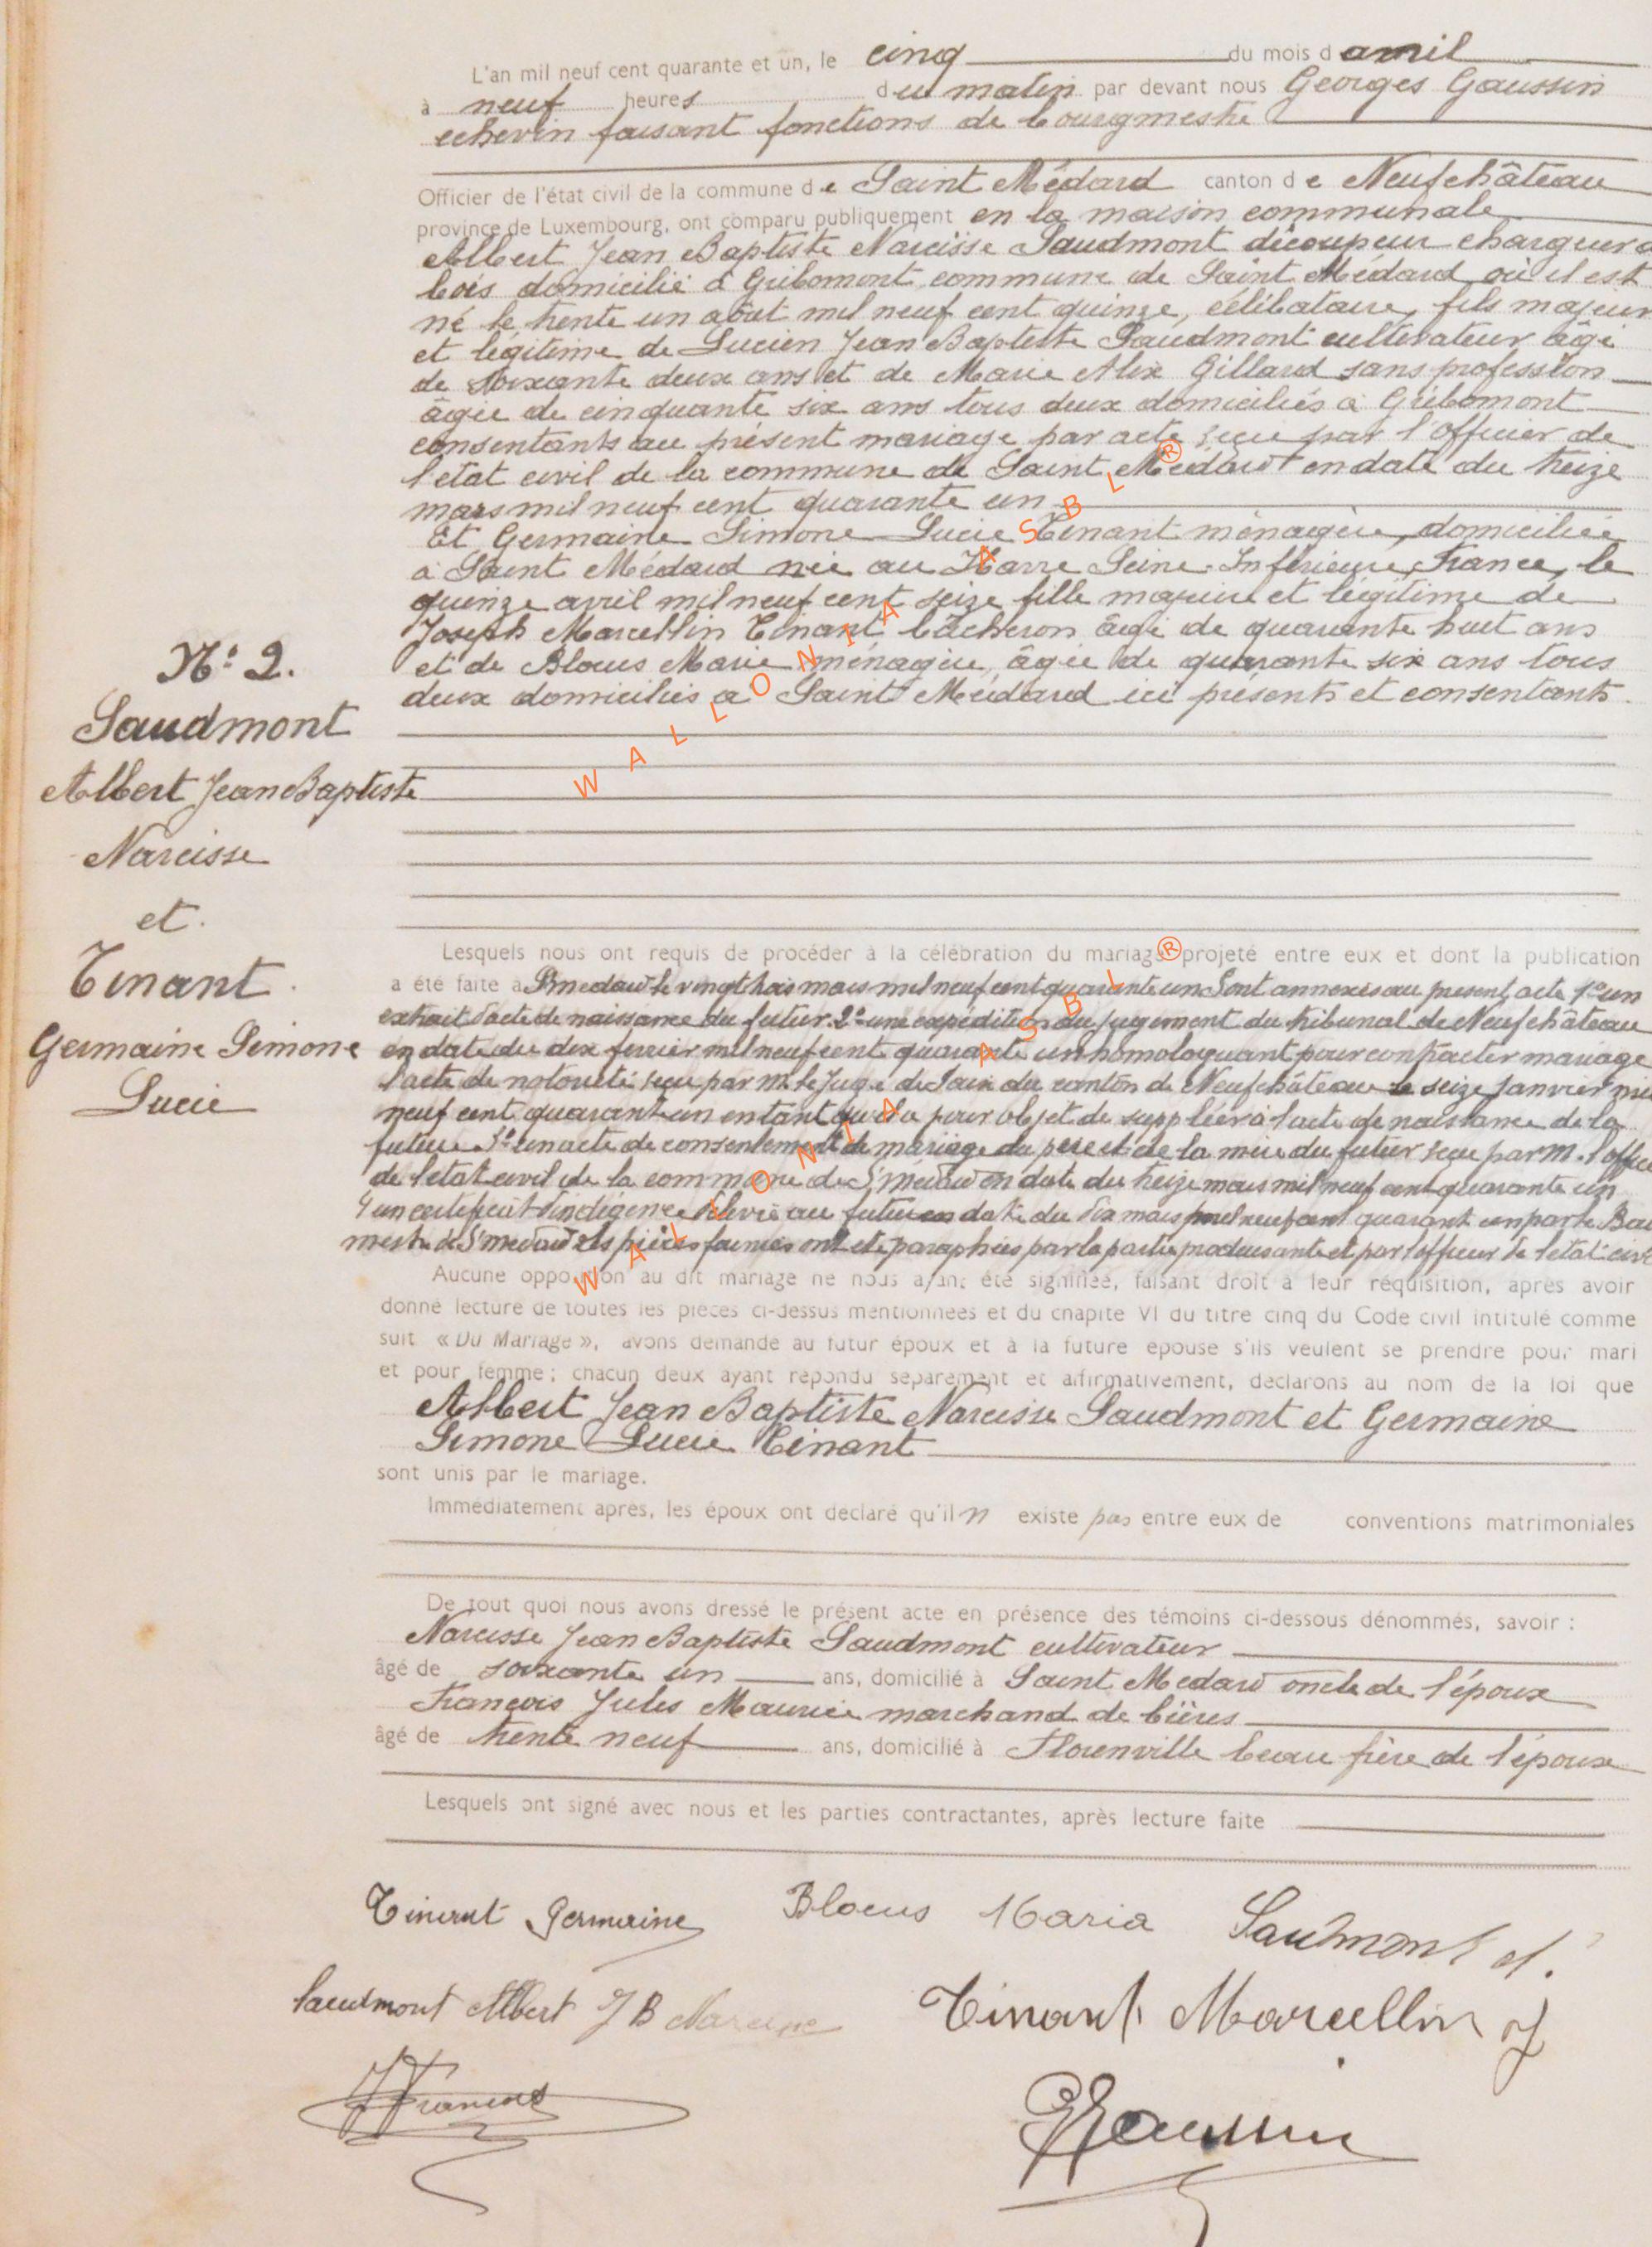 L'an mil neuf cent quarante et un, le cinq du mois d avril
à neuf heures du matin par devant nous Georges Gaussin
echevin faisant fonctions de bourgmestre
Officier de l'état civil de la commune de Saint Médard canton de Neufchâteau
province de Luxembourg, ont comparu publiquement en la maison communale
Albert Jean Baptiste Narcisse Saudmont découpeur chargeur à
bois domicilié à Gribomont commune de Saint Médard où il est
né le trente un août mil neuf cent quinze, célibataire, fils majeur
et légitime de Lucien Jean Baptiste Saudmont cultivateur âgé
de soixante deux ans et de Marie Alix Gillard sans profession
âgée de cinquante six ans tous deux domiciliés à Gribomont
consentants au présent mariage par acte reçu par l'officier de
l'etat civil de la commune de Saint Médard en date du treize
mars mil neuf cent quarante un
Et Germaine Simone Lucie Tinant ménagère, domiciliée
à Saint Médard née au Havre Seine Inférieure France, le
quinze avril mil neuf cent seize fille majeure et légitime de
Joseph Marcellin Tinant bûcheron âgé de quarante huit ans
et de Blocus Marie ménagère, âgée de quarante six ans tous
deux domiciliés à Saint Médard ici présents et consentants
N° 2.
Saudmont
Albert Jean Baptiste
Narcisse
et
Tinant
Germaine Simone
Lucie
WALLONIA ASBL ®
Lesquels nous ont requis de procéder à la célébration du mariage projeté entre eux et dont la publication
a été faite à St medard le vingt trois mars mil neuf cent quarante un Sont annexés au present acte 1° un
extrait d'acte de naissance du futur. 2° une expédition du jugement du tribunal de Neufchâteau
en date du dix fevrier mil neuf cent quarante un homologuant pour contracter mariage
l'acte de notoriété reçu par M. le Juge de Paix du canton de Neufchâteau le seize janvier mil
neuf cent quarante un en tant qu'il a pour objet de suppléer à l'acte de naissance de la
future 3° un acte de consentement de mariage du père et de la mère du futur reçu par M. l'officier
de l'etat civil de la commune de St Médard en date du treize mars mil neuf cent quarante un
4 un certificat d'indigence délivré au futur en date du dix mars mil neuf cent quarante un par le Bourg
mestre de St medard les pièces fournies ont été paraphées par la partie produisante et par l'officier de l'etat civil
WALLONIA ASBL ®
Aucune opposition au dit mariage ne nous ayant été signifiée, faisant droit à leur réquisition, après avoir
donné lecture de toutes les pièces ci-dessus mentionnées et du chapite VI du titre cinq du Code civil intitulé comme
suit « Du Mariage », avons demandé au futur époux et à la future épouse s'ils veulent se prendre pour mari
et pour femme ; chacun deux ayant répondu séparément et affirmativement, déclarons au nom de la loi que
Albert Jean Baptiste Narcisse Saudmont et Germaine
Simone Lucie Tinant
sont unis par le mariage.
Immédiatement après, les époux ont déclaré qu'il n existe pas entre eux de conventions matrimoniales
De tout quoi nous avons dressé le présent acte en présence des témoins ci-dessous dénommés, savoir :
Narcisse Jean Baptiste Saudmont cultivateur
âgé de soixante un ans, domicilié à Saint Medard oncle de l'époux
François Jules Maurice marchand de bières
âgé de trente neuf ans, domicilié à Florenville beau frère de l'épouse
Lesquels ont signé avec nous et les parties contractantes, après lecture faite
Tinant Germaine Blocus Maria Saudmont
Saudmont Albert J B Narcisse Tinant Marcellin J
J François GGaussin